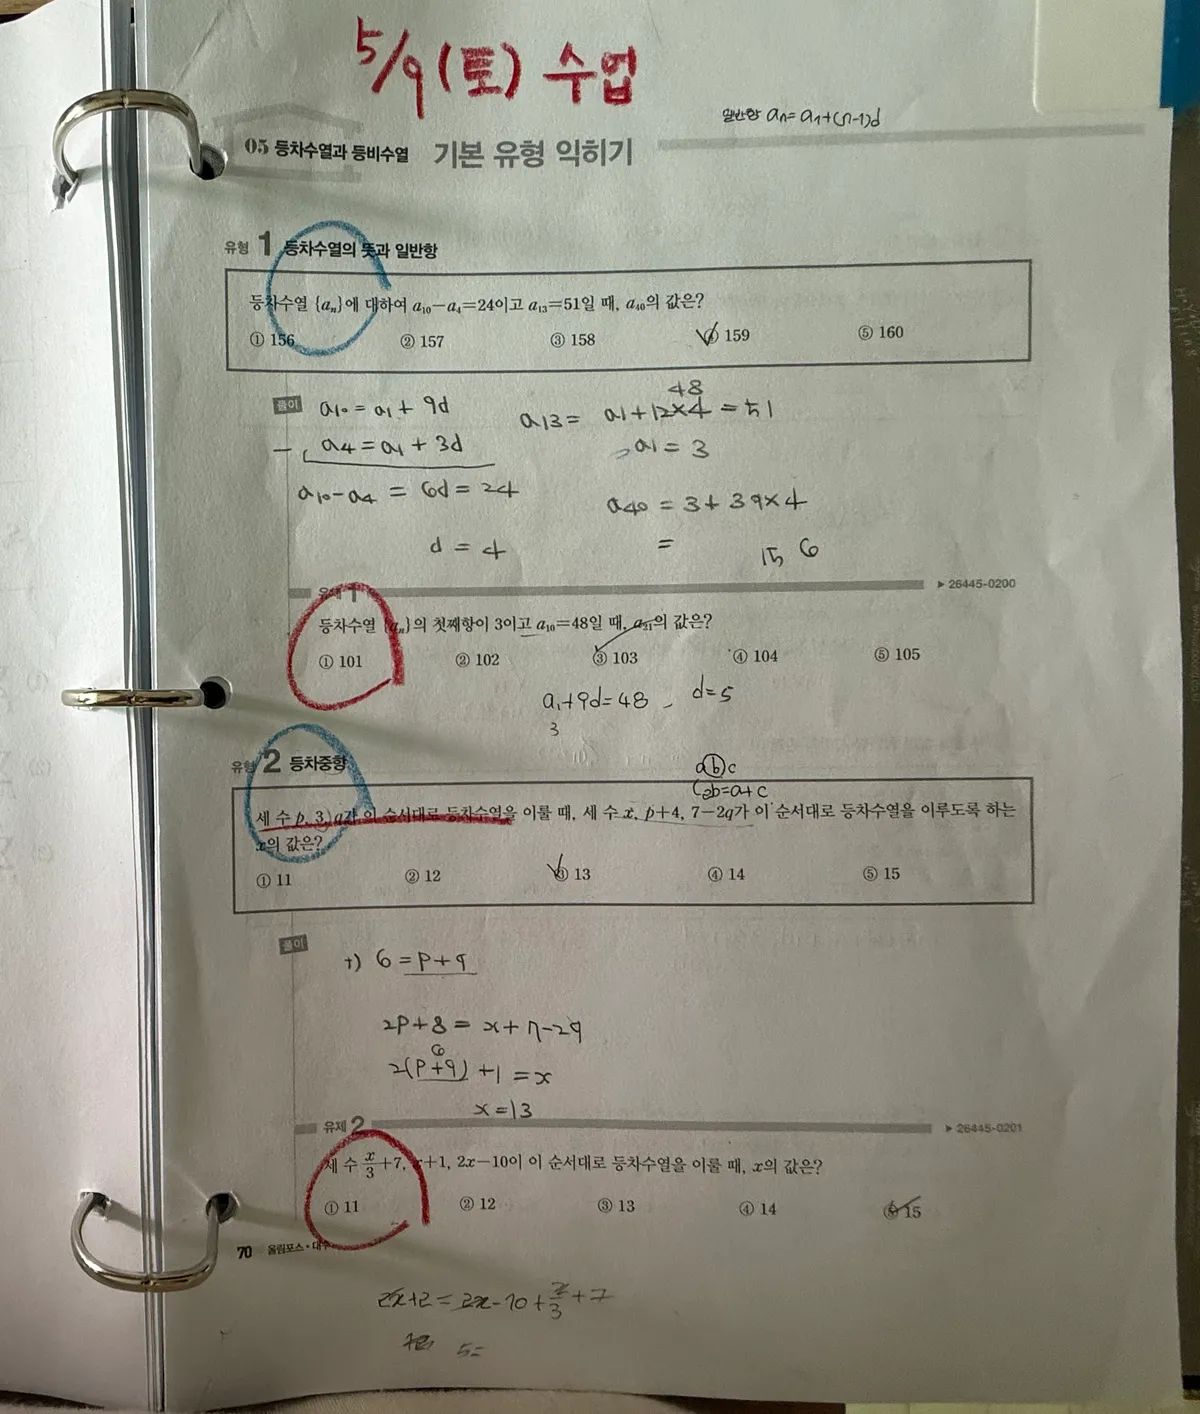 5/9(토) 수업
일반항 an=a1+(n-1)d
05 등차수열과 등비수열 기본 유형 익히기
유형 1 등차수열의 뜻과 일반항
등차수열 {aₙ}에 대하여 a₁₀-a₄=24이고 a₁₃=51일 때, a₄₀의 값은?
① 156 ② 157 ③ 158 ④ 159 ⑤ 160
풀이
a10=a1+9d
- a4=a1+3d
a10-a4 = 6d=24
d=4
48
a13= a1+12×4=51
a1=3
a40=3+39×4
= 156
유제 1
▶ 26445-0200
등차수열 {aₙ}의 첫째항이 3이고 a₁₀=48일 때, a₂₁의 값은?
① 101 ② 102 ③ 103 ④ 104 ⑤ 105
a1+9d=48 d=5
3
유형 2 등차중항
a b c
2b=a+c
세 수 p, 3, q가 이 순서대로 등차수열을 이룰 때, 세 수 x, p+4, 7-2q가 이 순서대로 등차수열을 이루도록 하는
x의 값은?
① 11 ② 12 ③ 13 ④ 14 ⑤ 15
풀이
+) 6=p+q
2p+8=x+7-2q
6
2(p+q)+1=x
x=13
유제 2
▶ 26445-0201
세 수 x/3+7, x+1, 2x-10이 이 순서대로 등차수열을 이룰 때, x의 값은?
① 11 ② 12 ③ 13 ④ 14 ⑤ 15
70 올림포스・대수
2x+2=2x-10+x/3+7
5=